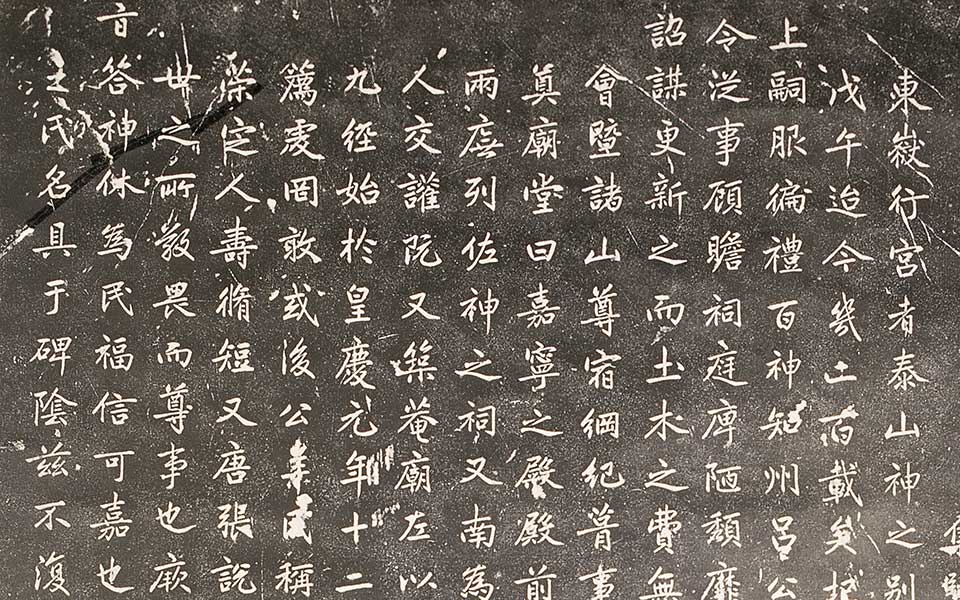 東嶽行宮者泰山神之別
戊午迨今幾二百載矣
上嗣服徧禮百神知州呂公
令從事顧瞻祠庭廖陋頹靡
詔謀更新之而土木之費無
會暨諸山尊宿綱紀耆事
真廟堂曰嘉寧之殿殿前
兩廡列佐神之祠又南為
人交讙既又築菴廟左以
九經始於皇慶元年十二
篤虔罔敢或後公 稱
柴定人壽脩短又唐張說
世之所敬畏而尊事也厥
言答神休為民福信可嘉也
主氏名具于碑陰茲不復